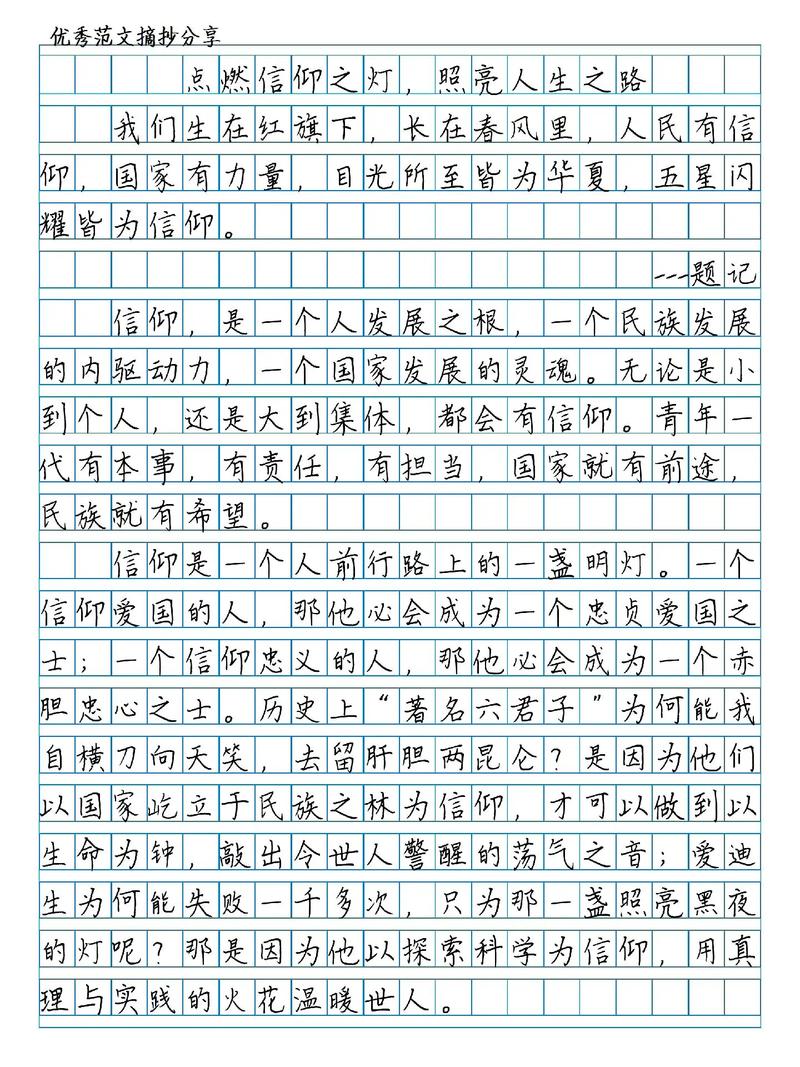 优秀范文摘抄分享
点燃信仰之灯，照亮人生之路
我们生在红旗下，长在春风里，人民有信
仰，国家有力量，目光所至皆为华夏，五星闪
耀皆为信仰。
---题记
信仰，是一个人发展之根，一个民族发展
的内驱动力，一个国家发展的灵魂。无论是小
到个人，还是大到集体，都会有信仰。青年一
代有本事，有责任，有担当，国家就有前途，
民族就有希望。
信仰是一个人前行路上的一盏明灯。一个
信仰爱国的人，那他必会成为一个忠贞爱国之
士；一个信仰忠义的人，那他必会成为一个赤
胆忠心之士。历史上“著名六君子”为何能我
自横刀向天笑，去留肝胆两昆仑？是因为他们
以国家屹立于民族之林为信仰，才可以做到以
生命为钟，敲出令世人警醒的荡气之音；爱迪
生为何能失败一千多次，只为那一盏照亮黑夜
的灯呢？那是因为他以探索科学为信仰，用真
理与实践的火花温暖世人。